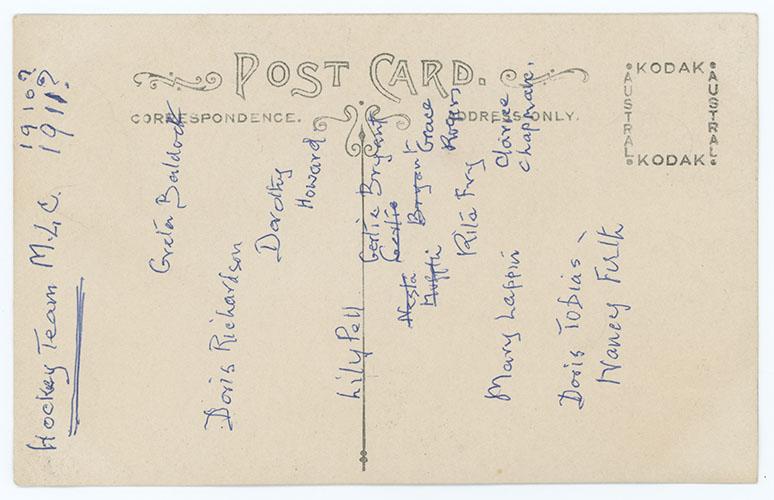 POST CARD.
CORRESPONDENCE.
ADDRESS ONLY.
KODAK
AUSTRAL
AUSTRAL
KODAK
Hockey Team M.L.C. 1910?
1911?
Greta Baldock
Doris Richardson
Dorothy
Howard
Lily Pell
Gertie Bryant
Gertie Bryant
Nesta
Grace
Rogers
Rita Fry
Mary Lappin
Clarice
Chapman.
Doris Tobias
Nancy Firth